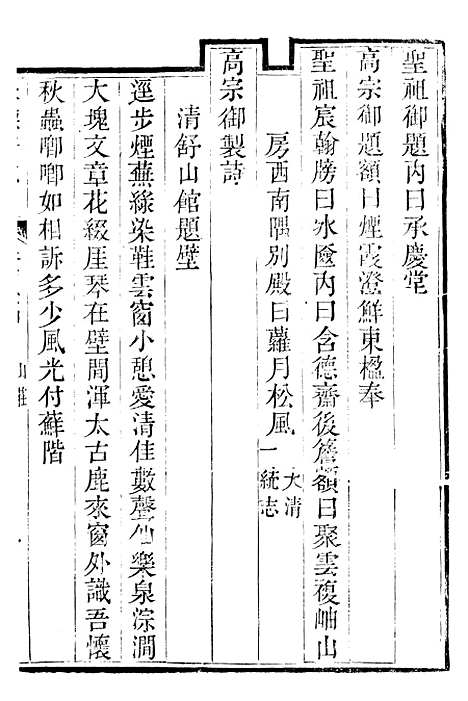 聖祖御題內曰承慶堂
高宗御題額曰煙霞澄鮮東楹奉
聖祖宸翰牓曰水奩內曰含德齋後簷額曰聚雲複岫山
房西南隅別殿曰蘿月松風大清一統志
高宗御製詩
清舒山館題壁
逕步煙蕪綠染鞋雲窗小憩愛清佳數聲仙樂泉淙澗
大塊文章花綴厓琴在壁間渾太古鹿來窗外識吾懷
秋蟲唧唧如相訴多少風光付蘚階
山莊